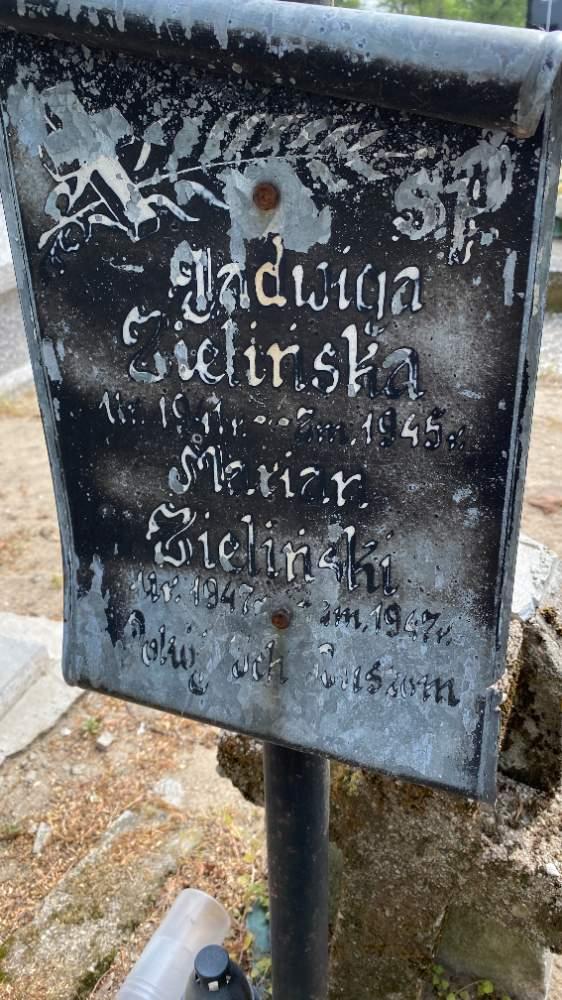 Ś.P.
Jadwiga
Zielińska
Ur. 1941r. Zm. 1945r.
Marian
Zieliński
Ur. 1947r. Zm. 1947r.
Pokój Ich Duszom